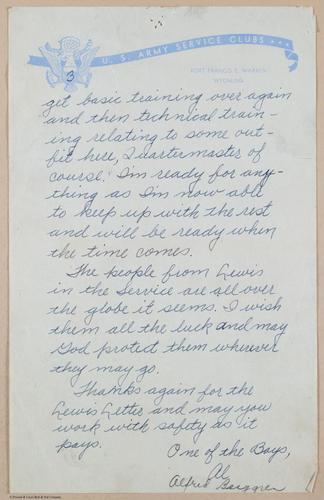 U. S. ARMY SERVICE CLUBS
FORT FRANCIS E. WARREN
WYOMING
3
get basic training over again
and then technical train-
ing relating to some out-
fit here, Quartermaster of
course. I'm ready for any-
thing as I'm now able
to keep up with the rest
and will be ready when
the time comes.
The people from Lewis
in the Service are all over
the globe it seems. I wish
them all the luck and may
God protect them wherever
they may go.
Thanks again for the
Lewis Letter and may you
work with safety as it
pays.
One of the Boys,
Al
Alfred